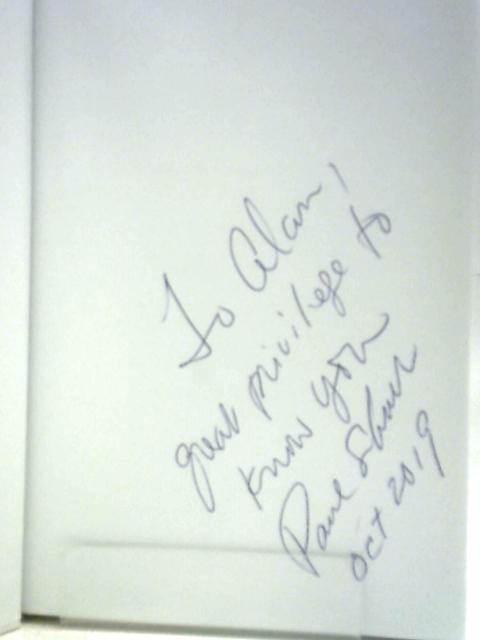 To Alan,
great privilege to
know you
Paul
Oct 2019